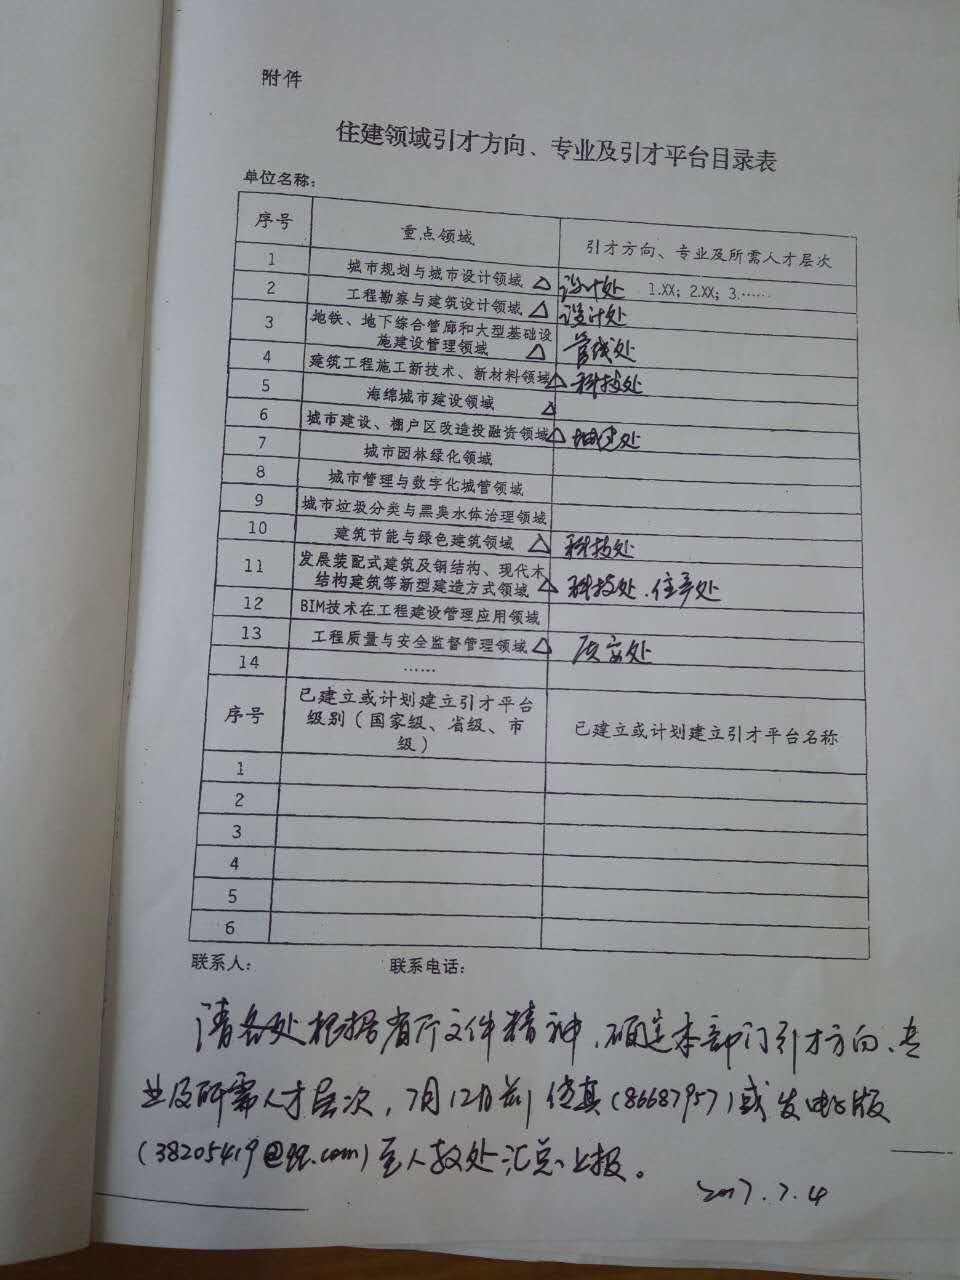 附件
住建领域引才方向、专业及引才平台目录表
单位名称：
序号 重点领域 引才方向、专业及所需人才层次
1 城市规划与城市设计领域 △ 设计处 1.XX；2.XX；3.……
2 工程勘察与建筑设计领域 △ 设计处
3 地铁、地下综合管廊和大型基础设
施建设管理领域 △ 管线处
4 建筑工程施工新技术、新材料领域 △ 科技处
5 海绵城市建设领域 △
6 城市建设、棚户区改造投融资领域 △ 城建处
7 城市园林绿化领域
8 城市管理与数字化城管领域
9 城市垃圾分类与黑臭水体治理领域
10 建筑节能与绿色建筑领域 △ 科技处
11 发展装配式建筑及钢结构、现代木
结构建筑等新型建造方式领域 △ 科技处、住产处
12 BIM技术在工程建设管理应用领域
13 工程质量与安全监督管理领域 △ 质安处
14 ……
序号 已建立或计划建立引才平台
级别（国家级、省级、市
级） 已建立或计划建立引才平台名称
1
2
3
4
5
6
联系人： 联系电话：
请各处根据省厅文件精神，确定本部门引才方向、专
业及所需人才层次，7月12日前传真（86687957）或发电子版
（38205419@qq.com）至人教处汇总上报。
2017.7.4